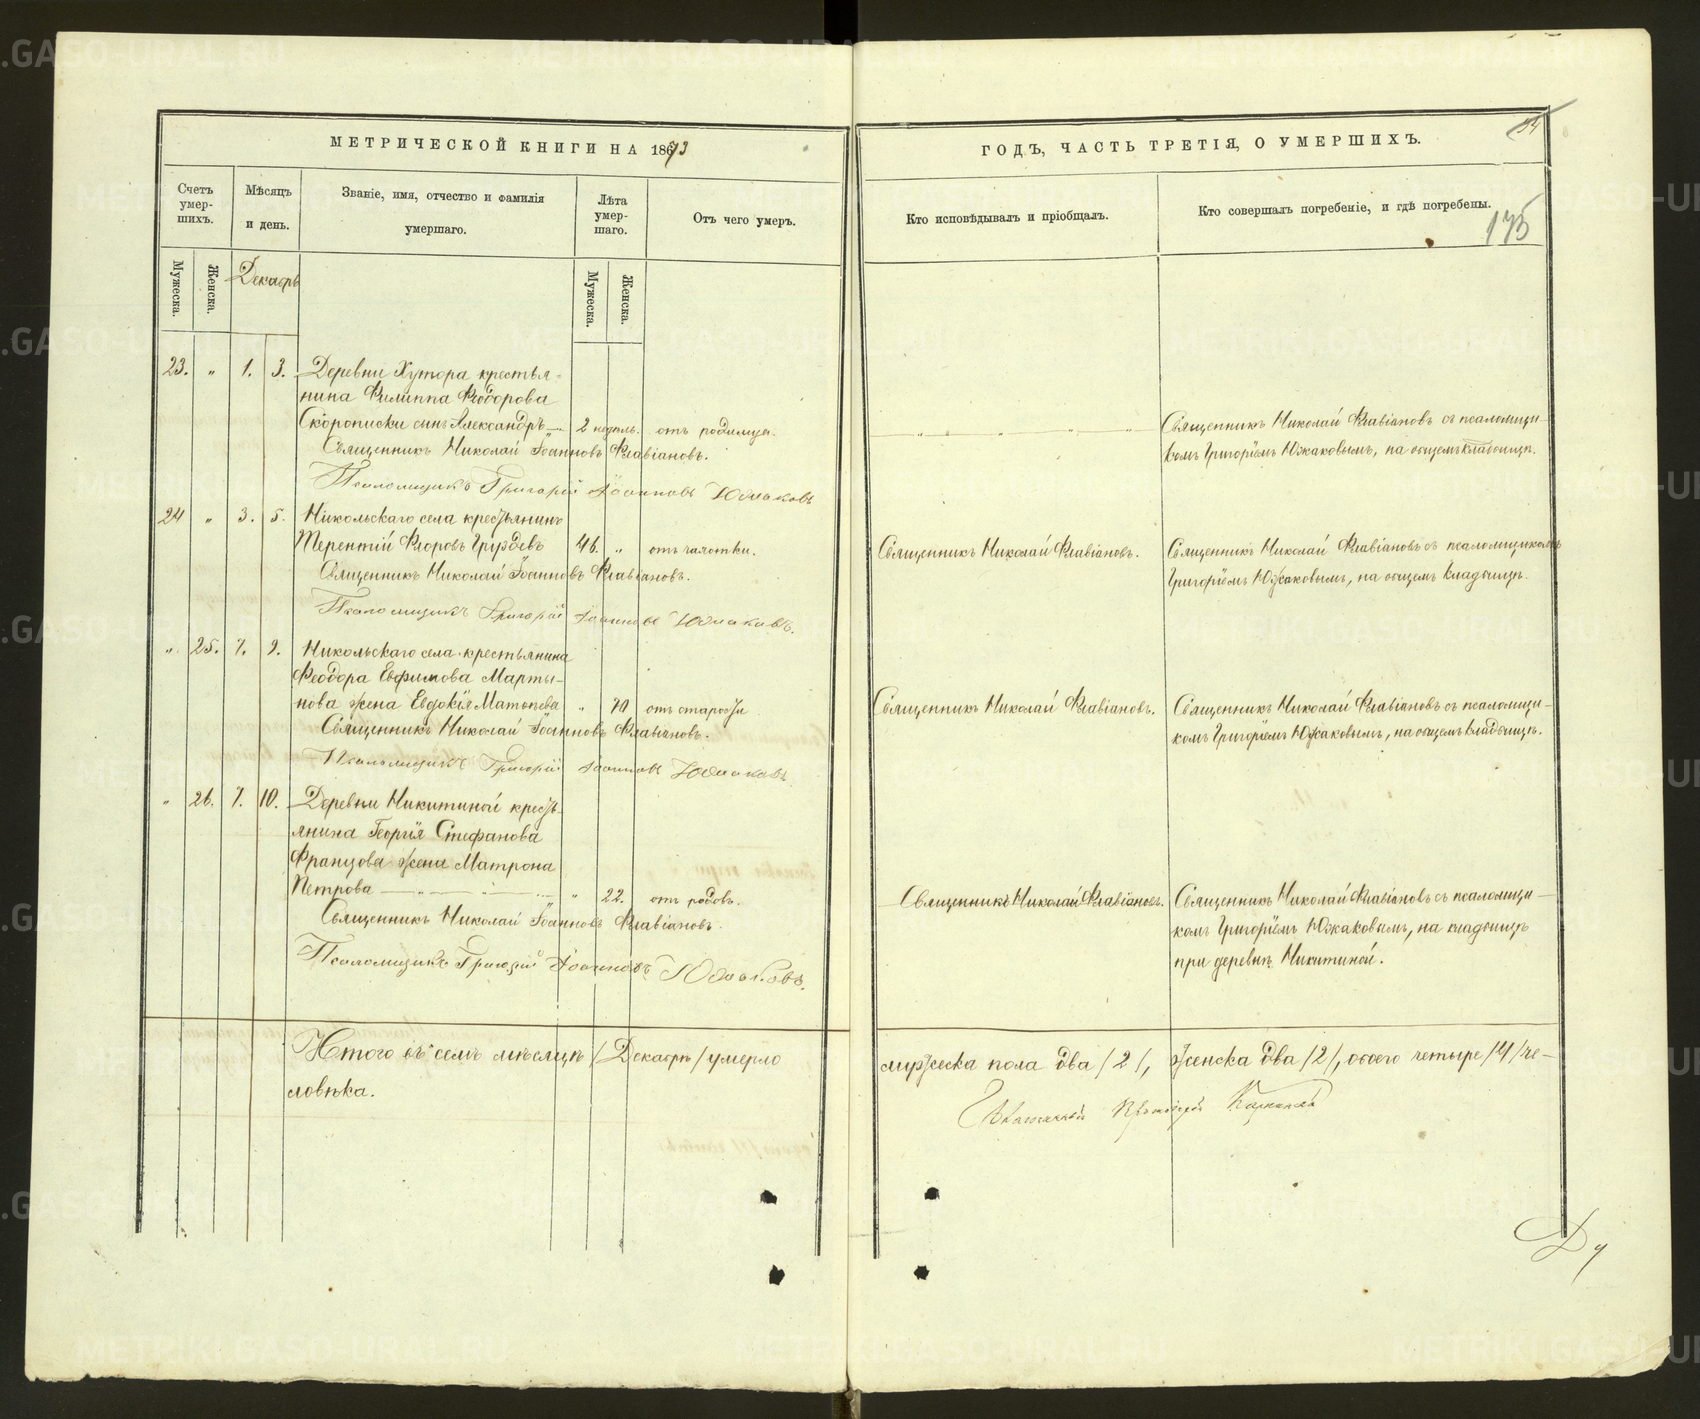 МЕТРИЧЕСКОЙ КНИГИ НА 1873
ГОДЪ, ЧАСТЬ ТРЕТІЯ, О УМЕРШИХЪ.
175
Счетъ умер-шихъ.
Мѣсяцъ и день.
Званіе, имя, отчество и фамилія умершаго.
Лѣта умер-шаго.
Отъ чего умеръ.
Кто исповѣдывалъ и пріобщалъ.
Кто совершалъ погребеніе, и гдѣ погребены.
Мужеска.
Женска.
Декабрь
Мужеска.
Женска.
23. „ 1. 3. Деревни Хутора крестья-
нина Филиппа Ѳеодорова
Скорописки сынъ Александръ 2 недѣль. отъ родимца.
Священникъ Николай Флавіановъ съ псаломщи-
комъ Григоріемъ Южаковымъ, на общемъ кладбищѣ.
Священникъ Николай Іоанновъ Флавіановъ.
Псаломщикъ Григорій Іоанновъ Южаковъ
24 „ 3. 5. Никольскаго села крестьянинъ
Терентій Груздевъ 46. „ отъ чахотки.
Священникъ Николай Флавіановъ.
Священникъ Николай Флавіановъ съ псаломщикомъ
Григоріемъ Южаковымъ, на общемъ кладбищѣ.
Священникъ Николай Іоанновъ Флавіановъ.
Псаломщикъ Григорій Іоанновъ Южаковъ.
„ 25. 7. 9. Никольскаго села крестьянина
Ѳеодора Евфимова Марты-
нова жена Евдокія Матвѣева „ 70 отъ старости
Священникъ Николай Флавіановъ.
Священникъ Николай Флавіановъ съ псаломщи-
комъ Григоріемъ Южаковымъ, на общемъ кладбищѣ.
Священникъ Николай Іоанновъ Флавіановъ.
Псаломщикъ Григорій Іоанновъ Южаковъ
„ 26. 7. 10. Деревни Никитиной кресть-
янина Георгія Стефанова
Францова жена Матрона
Петрова „ 22. отъ родовъ.
Священникъ Николай Флавіановъ.
Священникъ Николай Флавіановъ съ псаломщи-
комъ Григоріемъ Южаковымъ, на кладбищѣ
при деревнѣ Никитиной.
Священникъ Николай Іоанновъ Флавіановъ.
Псаломщикъ Григорій Іоанновъ Южаковъ.
Итого въ семъ мѣсяцѣ /Декабрѣ/ умерло мужеска пола два /2/, женска два /2/, обоего четыре /4/ че-
ловѣка.